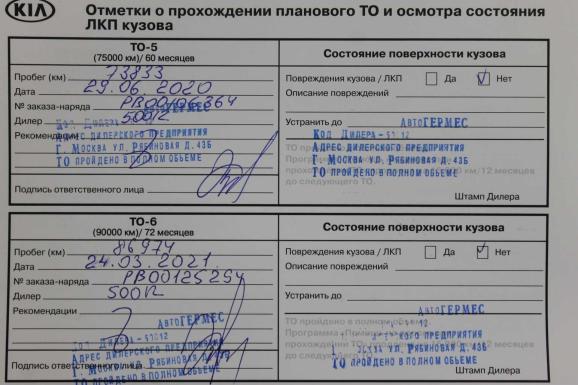 KIA
Отметки о прохождении планового ТО и осмотра состояния
ЛКП кузова
ТО-5
(75000 км)/ 60 месяцев
Состояние поверхности кузова
Пробег (км) 73833
Повреждения кузова / ЛКП Да Нет
Дата 29.06.2020
Описание повреждений
№ заказа-наряда РВ00106364
Дилер 500/2
АвтоГЕРМЕС
Устранить до АвтоГЕРМЕС
Рекомендации
Код Дилера - 50 12
АДРЕС ДИЛЕРСКОГО ПРЕДПРИЯТИЯ
Г. МОСКВА УЛ. РЯБИНОВАЯ Д. 43Б
ТО ПРОЙДЕНО В ПОЛНОМ ОБЪЕМЕ
АДРЕС ДИЛЕРСКОГО ПРЕДПРИЯТИЯ
Г. МОСКВА УЛ. РЯБИНОВАЯ Д. 43Б
ТО ПРОЙДЕНО В ПОЛНОМ ОБЪЕМЕ
до следующего ТО.
Подпись ответственного лица
Штамп Дилера
ТО-6
(90000 км)/ 72 месяцев
Состояние поверхности кузова
Пробег (км) 86974
Повреждения кузова / ЛКП Да Нет
Дата 24.03.2021
Описание повреждений
№ заказа-наряда РВ00125254
Дилер 500/2
Устранить до
Рекомендации
АвтоГЕРМЕС
АвтоГЕРМЕС
ТО пройдено в полном объеме
АДРЕС ДИЛЕРСКОГО ПРЕДПРИЯТИЯ
Г. МОСКВА УЛ. РЯБИНОВАЯ Д. 43Б
ТО ПРОЙДЕНО В ПОЛНОМ ОБЪЕМЕ
ПРЕДПРИЯТИЯ
УЛ. РЯБИНОВАЯ Д. 43Б
ТО ПРОЙДЕНО В ПОЛНОМ ОБЪЕМЕ
Подпись ответственного лица
Штамп Дилера